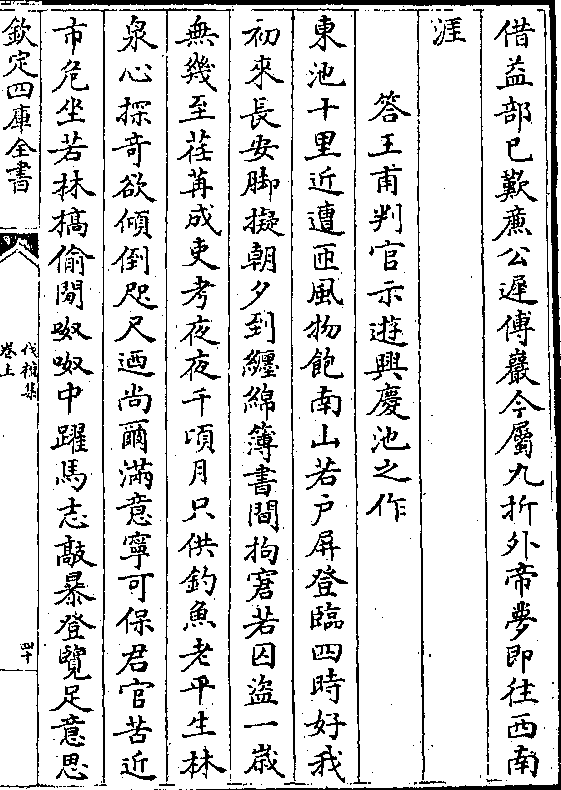 借益部已歎廉公遲傅巖今屬九折外帝夢即往西南
涯
答王甫判官示遊興慶池之作
東池十里近遭匝風物飽南山若戶屏登臨四時好我
初來長安脚擬朝夕到纒綿簿書間拘窘若囚盜一嵗
無幾至荏苒成吏考夜夜千頃月只供釣魚老平生林
泉心探奇欲傾倒咫尺迺尚爾滿意寧可保君官苦近
市危坐若林槁偷閒呶呶中躍馬志敲暴登覽足意思
欽定四庫全書
伐檀集
卷上
四十